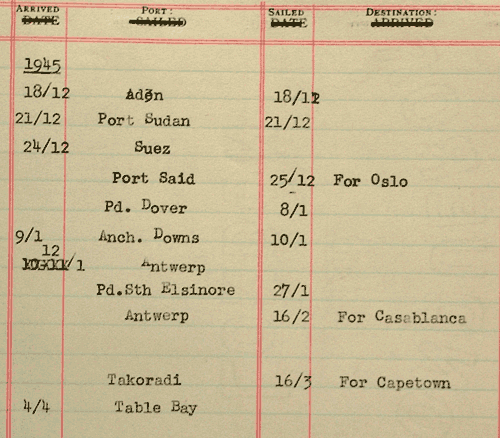 ARRIVED PORT: SAILED DESTINATION:
DATE SAILED DATE ARRIVED
1945
18/12 Aden 18/12
21/12 Port Sudan 21/12
24/12 Suez
Port Said 25/12 For Oslo
Pd. Dover 8/1
9/1 Anch. Downs 10/1
12
/1 Antwerp
Pd.Sth Elsinore 27/1
Antwerp 16/2 For Casablanca
Takoradi 16/3 For Capetown
4/4 Table Bay